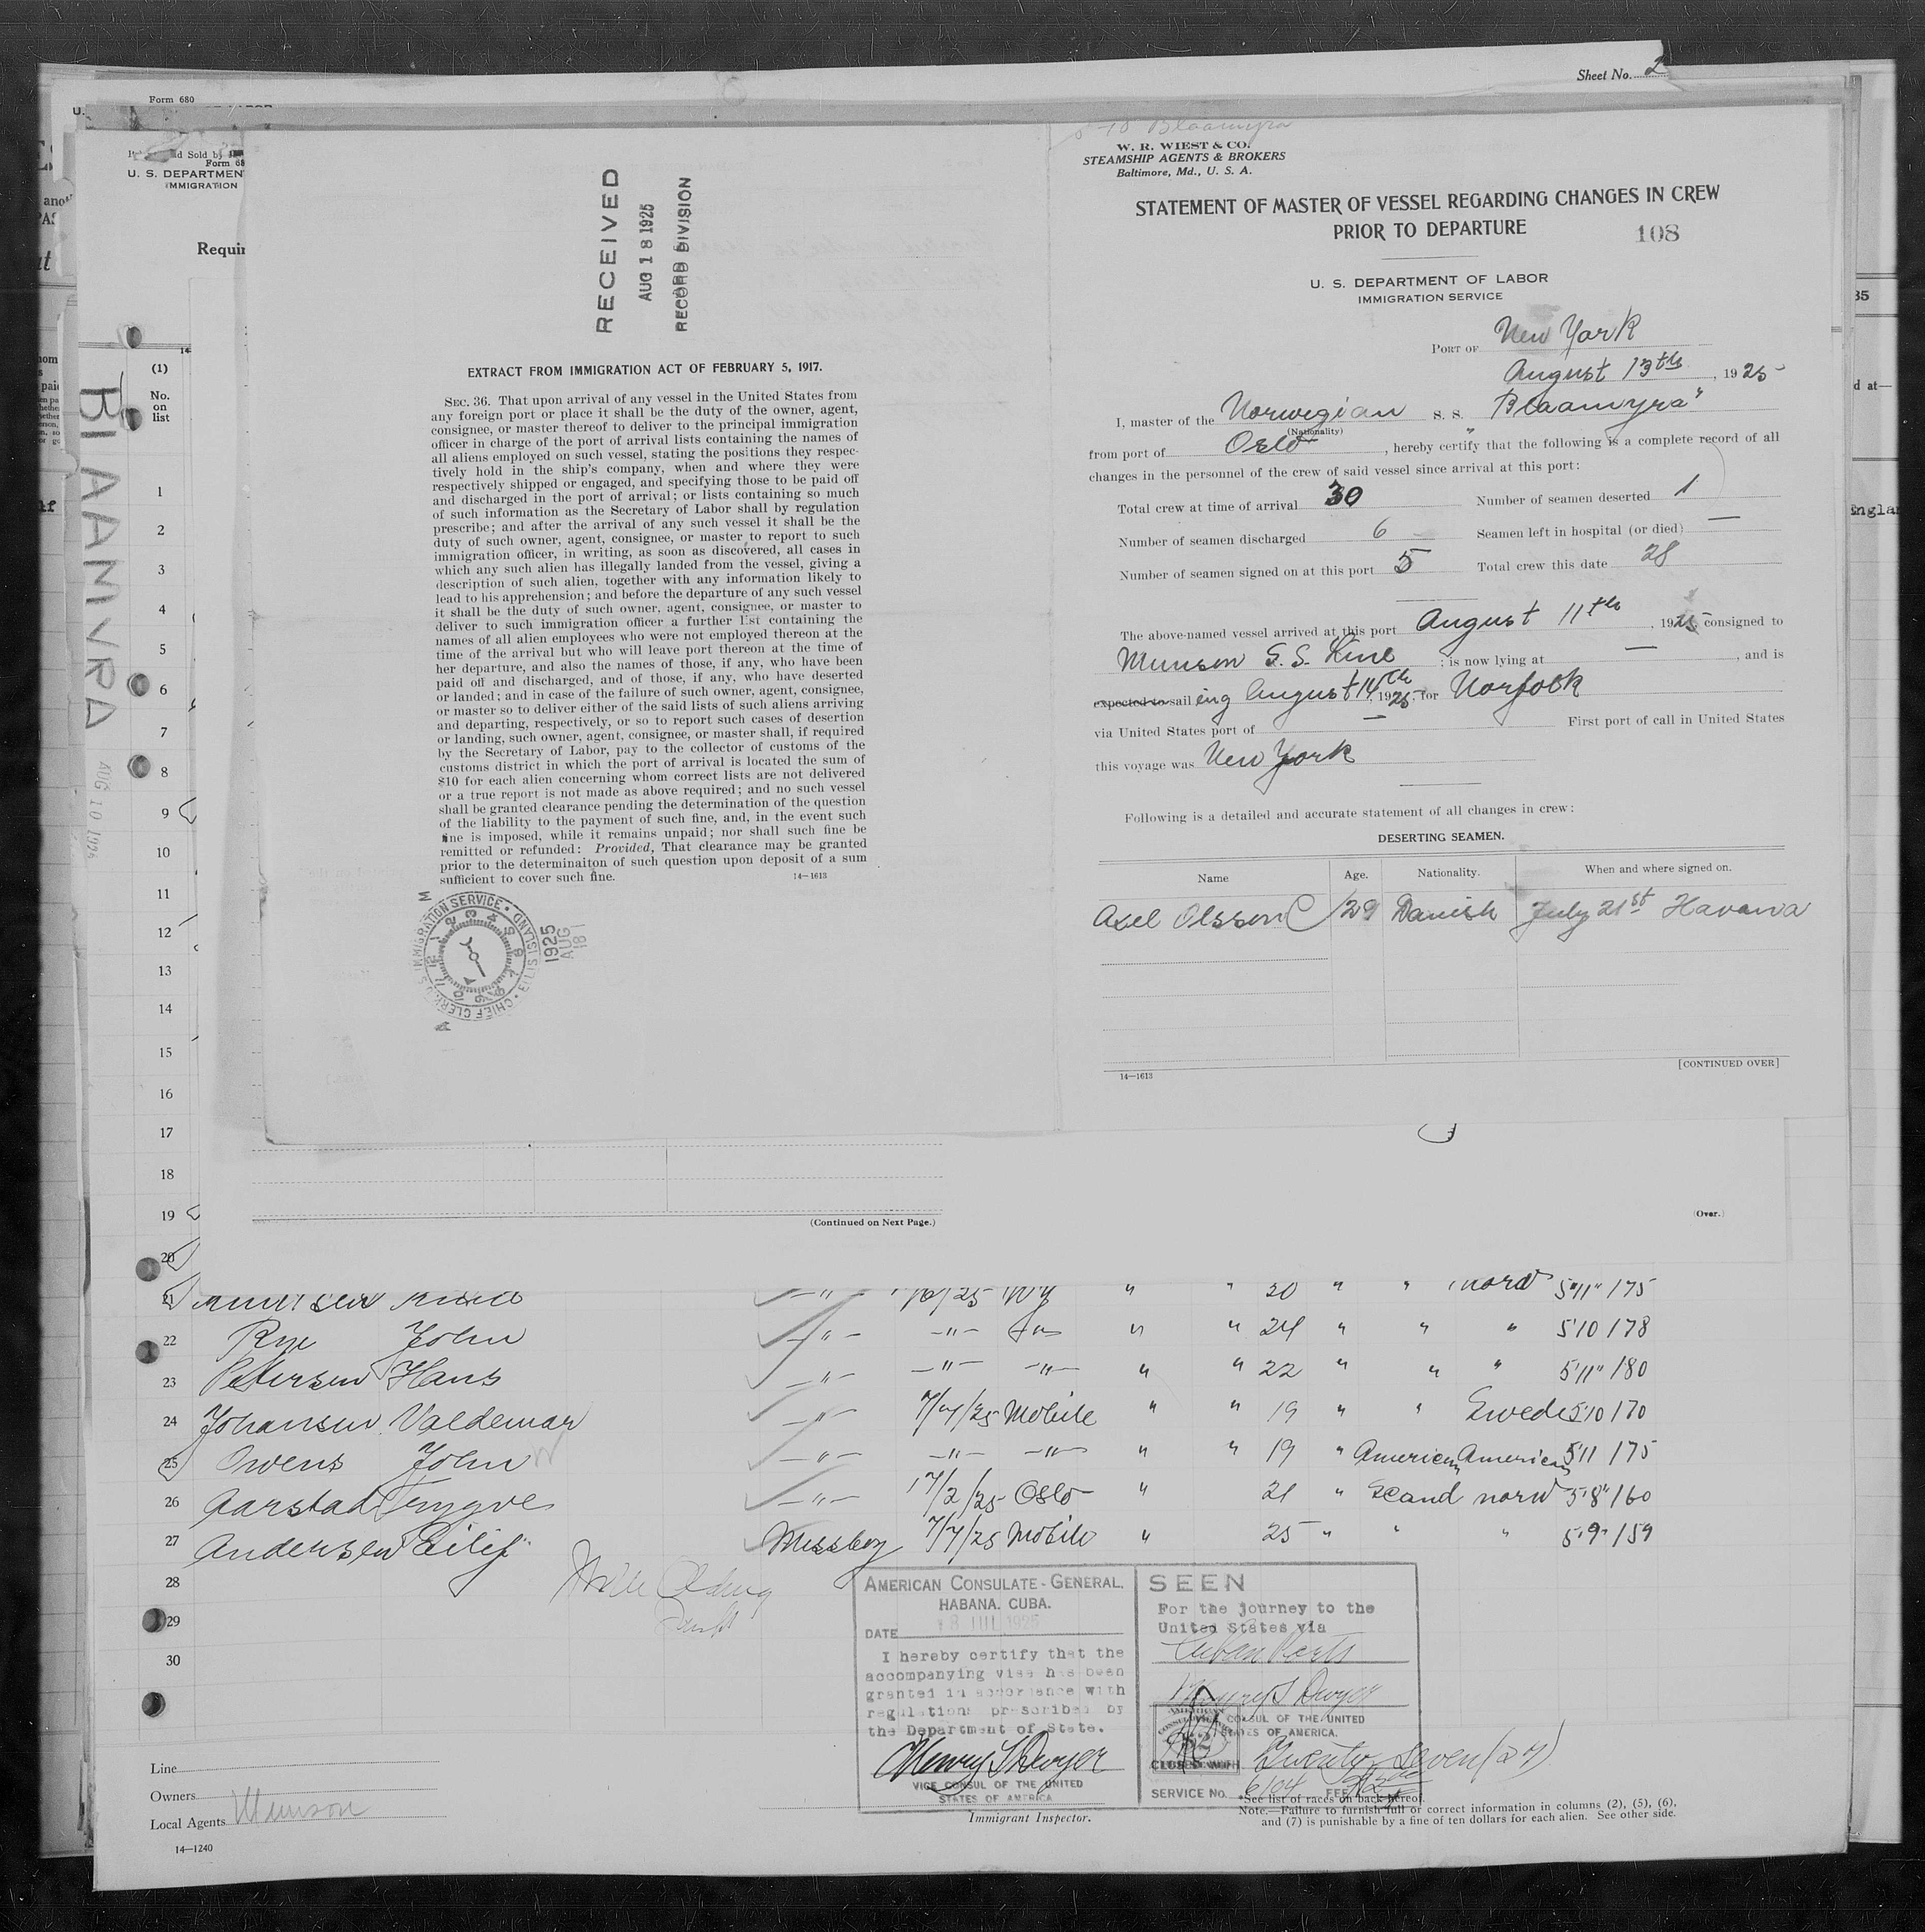 Sheet No. 2
Form 680
Form 68
U. S. DEPARTMEN
IMMIGRATION
Requir
(1)
No.
on
list
BLAAMYRA
AUG 10 192
RECEIVED
AUG 18 1925
RECORD DIVISION
EXTRACT FROM IMMIGRATION ACT OF FEBRUARY 5, 1917.
SEC. 36. That upon arrival of any vessel in the United States from
any foreign port or place it shall be the duty of the owner, agent,
consignee, or master thereof to deliver to the principal immigration
officer in charge of the port of arrival lists containing the names of
all aliens employed on such vessel, stating the positions they respec-
tively hold in the ship's company, when and where they were
respectively shipped or engaged, and specifying those to be paid off
and discharged in the port of arrival; or lists containing so much
of such information as the Secretary of Labor shall by regulation
prescribe; and after the arrival of any such vessel it shall be the
duty of such owner, agent, consignee, or master to report to such
immigration officer, in writing, as soon as discovered, all cases in
which any such alien has illegally landed from the vessel, giving a
description of such alien, together with any information likely to
lead to his apprehension; and before the departure of any such vessel
it shall be the duty of such owner, agent, consignee, or master to
deliver to such immigration officer a further list containing the
names of all alien employees who were not employed thereon at the
time of the arrival but who will leave port thereon at the time of
her departure, and also the names of those, if any, who have been
paid off and discharged, and of those, if any, who have deserted
or landed; and in case of the failure of such owner, agent, consignee,
or master so to deliver either of the said lists of such aliens arriving
and departing, respectively, or so to report such cases of desertion
or landing, such owner, agent, consignee, or master shall, if required
by the Secretary of Labor, pay to the collector of customs of the
customs district in which the port of arrival is located the sum of
$10 for each alien concerning whom correct lists are not delivered
or a true report is not made as above required; and no such vessel
shall be granted clearance pending the determination of the question
of the liability to the payment of such fine, and, in the event such
fine is imposed, while it remains unpaid; nor shall such fine be
remitted or refunded: Provided, That clearance may be granted
prior to the determinaiton of such question upon deposit of a sum
sufficient to cover such fine.
14—1613
U S IMMIGRATION SERVICE • ELLIS ISLAND • CHIEF CLERK
1925
AUG
18
S-18 Blaamyra
W. R. WIEST & CO.
STEAMSHIP AGENTS & BROKERS
Baltimore, Md., U. S. A.
STATEMENT OF MASTER OF VESSEL REGARDING CHANGES IN CREW
PRIOR TO DEPARTURE
108
U. S. DEPARTMENT OF LABOR
IMMIGRATION SERVICE
PORT OF New York
August 13th, 1925
I, master of the Norwegian S. S. "Blaamyra"
(Nationality)
from port of Oslo, hereby certify that the following is a complete record of all
changes in the personnel of the crew of said vessel since arrival at this port:
Total crew at time of arrival 30 Number of seamen deserted 1
Number of seamen discharged 6 Seamen left in hospital (or died) —
Number of seamen signed on at this port 5 Total crew this date 28
The above-named vessel arrived at this port August 11th, 1925, consigned to
Munson S. S. Line; is now lying at —, and is
expected to sailing August 14th 1925, for Norfolk
via United States port of — First port of call in United States
this voyage was New York
Following is a detailed and accurate statement of all changes in crew:
DESERTING SEAMEN.
Name Age. Nationality. When and where signed on.
Axel Olsson 29 Danish July 21st Havana
[CONTINUED OVER]
14—1613
1
2
3
4
5
6
7
8
9
10
11
12
13
14
15
16
17
18
19
(Continued on Next Page.) (Over.)
20
21 " /25 NY " " 20 " " nord 5'11" 175
22 Rye John —"— —"— " " 24 " " " 5'10 178
23 Petersen Hans —"— —"— —"— " " 22 " " " 5'11" 180
24 Johansen Valdemar —"— 7/7/25 Mobile " " 19 " " Swede 5'10 170
25 Owens John —"— —"— —"— " " 19 " American American 5'11 175
26 Aarstad Trygve —"— 17/2/25 Oslo " 21 " Scand norw 5'8" 160
27 Andersen Eilif Messboy 7/7/25 Mobile " 25 " " " 5'9" 159
28
29
30
AMERICAN CONSULATE-GENERAL.
HABANA. CUBA.
DATE 18 JUL 1925
I hereby certify that the
accompanying visa has been
granted in accordance with
regulations prescribed by
the Department of State.
Henry S Dwyer
VICE CONSUL OF THE UNITED
STATES OF AMERICA
SEEN
For the journey to the
United States via
Cuban Ports
Henry S Dwyer
CONSUL OF THE UNITED
STATES OF AMERICA.
Twenty Seven (27)
SERVICE No. 6104 FEE
Line
Owners
Local Agents Munson
14—1240
Immigrant Inspector.
*See list of races on back hereof.
Note.—Failure to furnish full or correct information in columns (2), (5), (6),
and (7) is punishable by a fine of ten dollars for each alien. See other side.